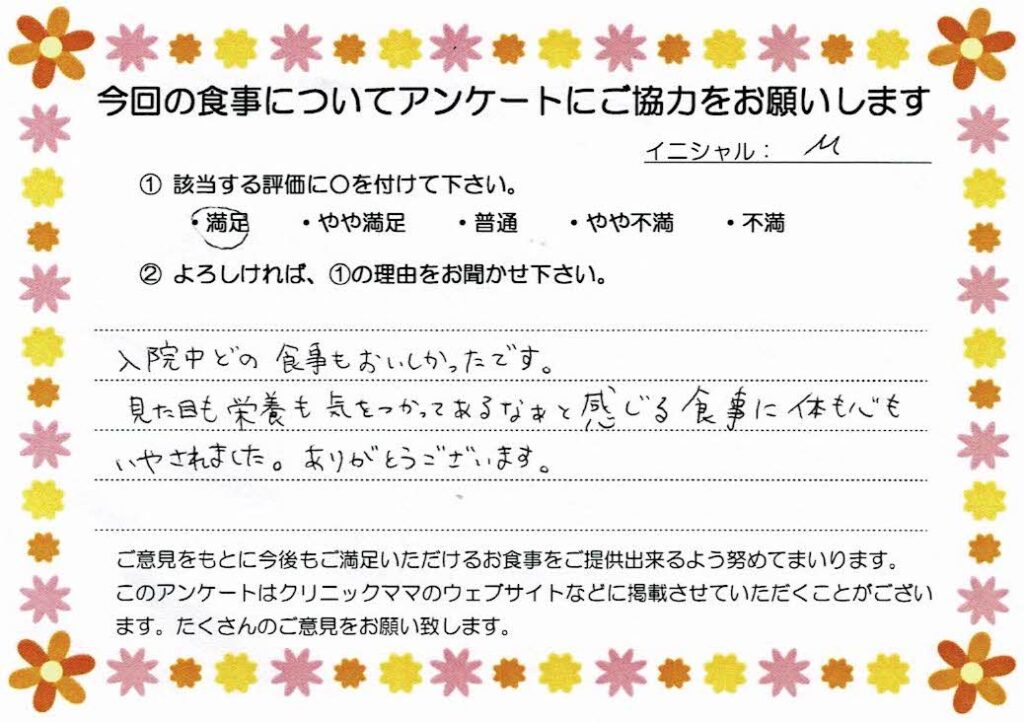 今回の食事についてアンケートにご協力をお願いします
イニシャル： M
① 該当する評価に〇を付けて下さい。
・満足 ・やや満足 ・普通 ・やや不満 ・不満
② よろしければ、①の理由をお聞かせ下さい。
入院中どの食事もおいしかったです。
見た目も栄養も気をつかってあるなぁと感じる食事に体も心も
いやされました。ありがとうございます。
ご意見をもとに今後もご満足いただけるお食事をご提供出来るよう努めてまいります。
このアンケートはクリニックママのウェブサイトなどに掲載させていただくことがござい
ます。たくさんのご意見をお願い致します。